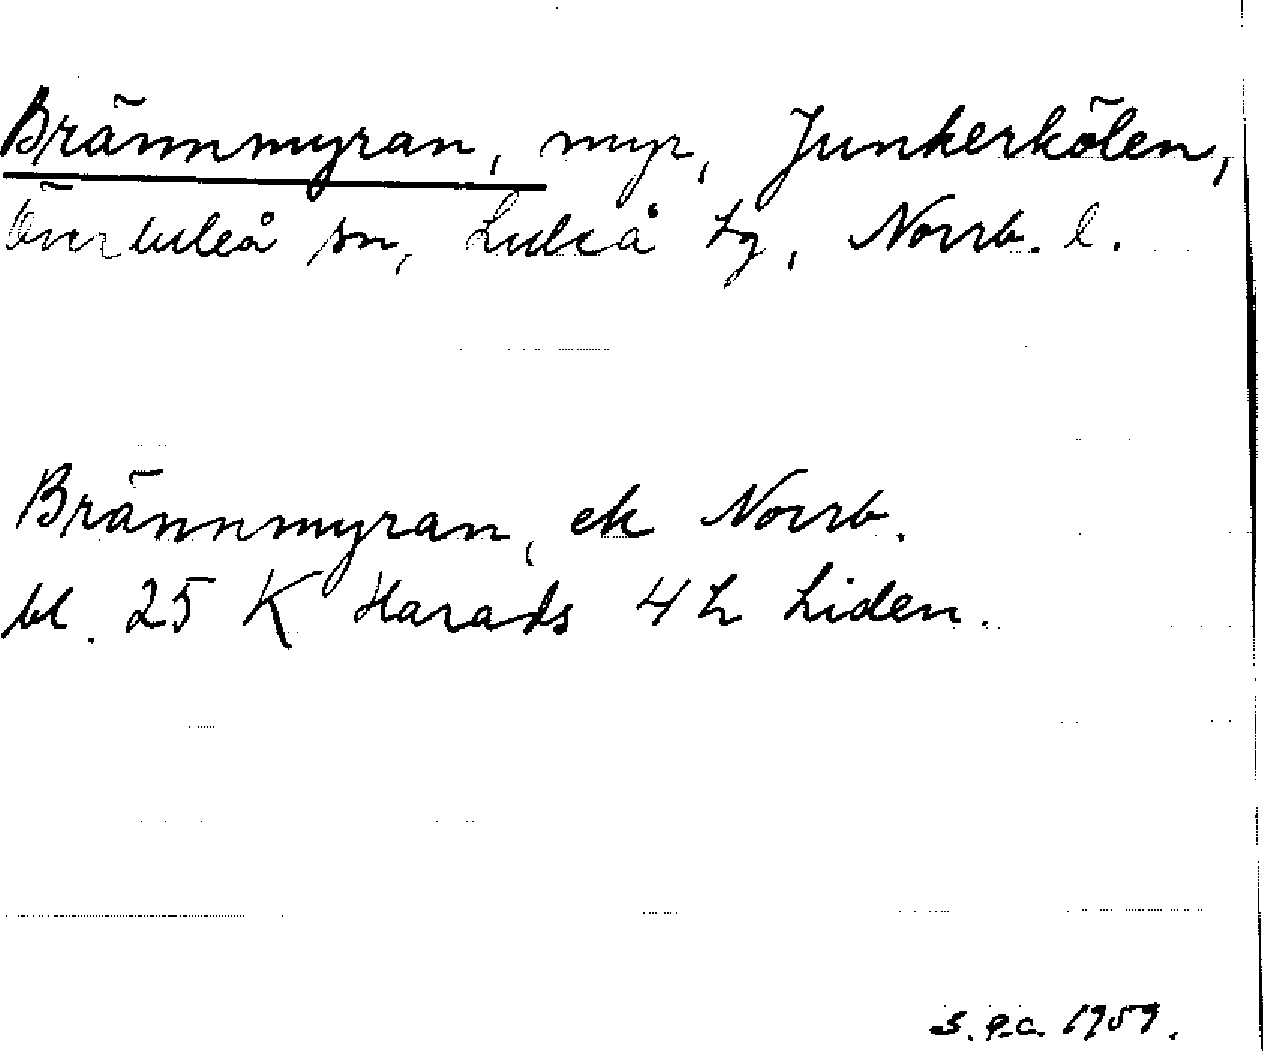 Brännmyran, myr, Junkerkölen,
Överluleå sn, Luleå tg, Norrb. l.
Brännmyran, ek Norrb.
bl. 25 K Harads 4 h Liden.
1959.